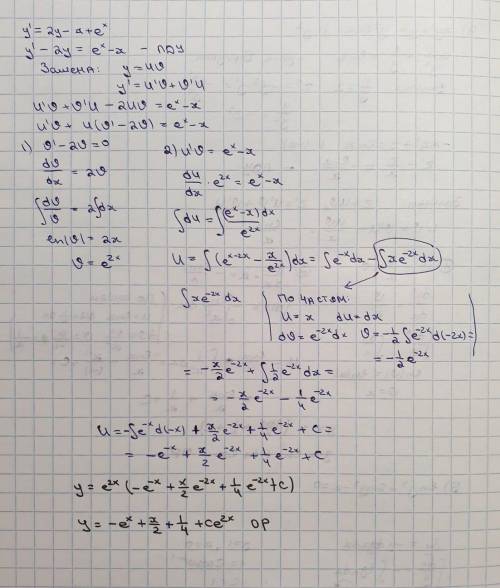 y' = 2y - x + eˣ
y' - 2y = eˣ - x - ЛДУ
Замена: y = uϑ
y' = u'ϑ + ϑ'u
u'ϑ + ϑ'u - 2uϑ = eˣ - x
u'ϑ + u(ϑ' - 2ϑ) = eˣ - x
1) ϑ' - 2ϑ = 0
dϑ/dx = 2ϑ
∫dϑ/ϑ = 2∫dx
ln(ϑ) = 2x
ϑ = e²ˣ
2) u'ϑ = eˣ - x
du/dx · e²ˣ = eˣ - x
∫du = ∫(eˣ - x)dx/e²ˣ
u = ∫(eˣ⁻²ˣ - x/e²ˣ)dx = ∫e⁻ˣdx - ∫xe⁻²ˣdx
∫xe⁻²ˣdx
ПО ЧАСТЯМ:
u = x du = dx
dϑ = e⁻²ˣdx ϑ = -1/2∫e⁻²ˣd(-2x) =
= -1/2e⁻²ˣ
= -x/2e⁻²ˣ + ∫1/2e⁻²ˣdx =
= -x/2e⁻²ˣ - 1/4e⁻²ˣ
u = -∫e⁻ˣd(-x) + x/2e⁻²ˣ + 1/4e⁻²ˣ + C =
= -e⁻ˣ + x/2e⁻²ˣ + 1/4e⁻²ˣ + C
y = e²ˣ(-e⁻ˣ + x/2e⁻²ˣ + 1/4e⁻²ˣ + C)
y = -eˣ + x/2 + 1/4 + Ce²ˣ ОР